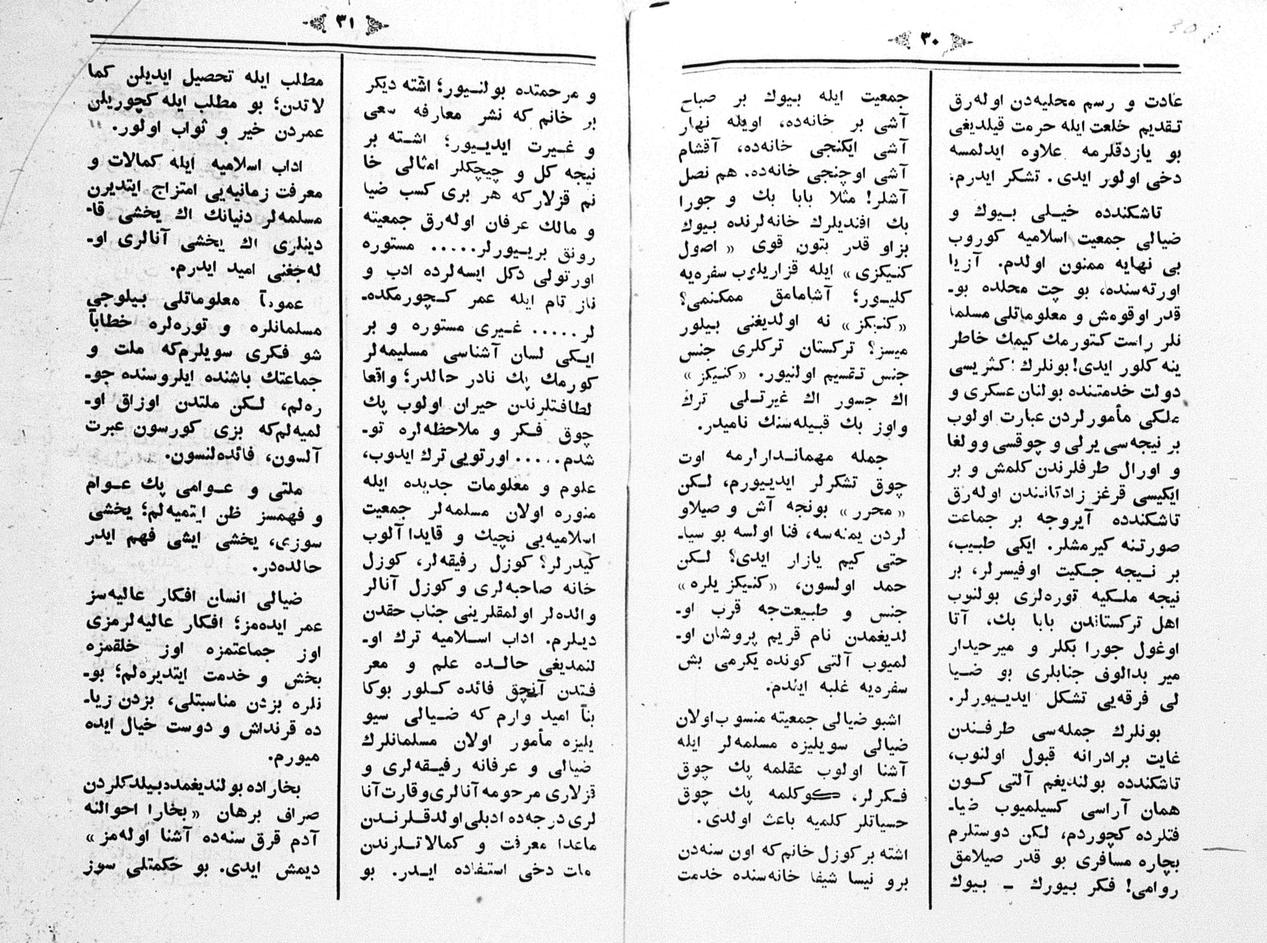 ٣٠
عادت و رسم محلیه‌دن اوله‌رق
تقدیم خلعت ایله حرمت قیلدیغی
بو یازدقلرمه علاوه ایدلمسه
دخی اولور ایدی. تشکر ایدرم.
تاشکندده خیلی بیوك و
ضیالی جمعیت اسلامیه کوروب
بی نهایه ممنون اولدم. آزیا
اورته‌سنده، بو چت محلده بو-
قدر اوقومش و معلوماتلی مسلما
نلر راست کتورمك کیمك خاطر
ینه کلور ایدی! بونلرك اکثریسی
دولت خدمتنده بولنان عسکری و
ملکی مأمورلردن عبارت اولوب
بر نیجه‌سی یرلی و چوقسی وولغا
و اورال طرفلرندن کلمش و بر
ایکیسی قرغز زادکانندن اوله‌رق
تاشکندده آیروجه بر جماعت
صورتنه کیرمشلر. ایکی طبیب،
بر نیجه جکیت اوفیسرلر، بر
نیجه ملکیه توره‌لری بولنوب
اهل ترکستاندن بابا بك، آتا
اوغول جورا بکلر و میرحیدار
میر بدالوف جنابلری بو ضیا
لی فرقه‌یی تشکل ایدییورلر.
بونلرك جمله‌سی طرفندن
غایت برادرانه قبول اولنوب،
تاشکندده بولندیغم آلتی کون
همان آراسی کسیلمیوب ضیا-
فتلرده کچوردم، لکن دوستلرم
بچاره مسافری بو قدر صیلامق
روامی! فکر بیورك - بیوك
جمعیت ایله بیوك بر صباح
آشی بر خانه‌ده، اویله نهار
آشی ایکنجی خانه‌ده، آقشام
آشی اوچنجی خانه‌ده. هم نصل
آشلر! مثلا بابا بك و جورا
بك افندیلرك خانه‌لرنده بیوك
بزاو قدر بتون قوی «اصول
کنیکزی» ایله قزاریلوب سفره‌یه
کلیور؛ آشامامق ممکنمی؟
«کنیکز» نه اولدیغنی بیلور
میسز؟ ترکستان ترکلری جنس
جنس تقسیم اولنیور. «کنیکز»
اك جسور اك غیرتلی ترك
واوز بك قبیله‌سنك نامیدر.
جمله مهماندارلرمه اوت
چوق تشکرلر ایدییورم، لکن
«محرر» بونجه آش و صیلاو
لردن یمنه‌سه، فنا اولسه بو سیا-
حتی کیم یازار ایدی؟ لکن
حمد اولسون، «کنیکز یلره»
جنس و طبیعت‌جه قرب او-
لدیغمدن نام قریم پروشان او-
لمیوب آلتی کونده یکرمی بش
سفره‌یه غلبه ایتدم.
اشبو ضیالی جمعیته منسوب اولان
ضیالی سویلیزه مسلمه‌لر ایله
آشنا اولوب عقلمه پك چوق
فکرلر، کوکلمه پك چوق
حسیاتلر کلمیه باعث اولدی.
اشته بر کوزل خانم که اون سنه‌دن
برو نیسا شیفا خانه‌سنده خدمت
٣١
و مرحمتده بولنیور؛ اشته دیکر
بر خانم که نشر معارفه سعی
و غیرت ایدییور؛ اشته بر
نیجه کل و چیچکلر امثالی خا
نم قزلار که هر بری کسب ضیا
و مالك عرفان اوله‌رق جمعیته
رونق بریورلر..... مستوره
اورتولی دکل ایسه‌لرده ادب و
ناز تام ایله عمر کچورمکده-
لر..... غیری مستوره و بر
ایکی لسان آشناسی مسلیمه‌لر
کورمك پك نادر حالدر؛ واقعا
لطافتلرندن حیران اولوب پك
چوق فکر و ملاحظه‌لره تو-
شدم..... اورتویی ترك ایدوب،
علوم و معلومات جدیده ایله
منوره اولان مسلمه‌لر جمعیت
اسلامیه‌یی نچیك و قایدا آلوب
کیدرلر؟ کوزل رفیقه‌لر، کوزل
خانه صاحبه‌لری و کوزل آنالر
والده‌لر اولمقلرینی جناب حقدن
دیلرم. اداب اسلامیه ترك او-
لنمدیغی حالده علم و معر
فتدن آنجق فائده کلور بوکا
بنآ امید وارم که ضیالی سیو
یلیزه مأمور اولان مسلمانلرك
ضیالی و عرفانه رفیقه‌لری و
قزلاری مرحومه آنالری و قارت آنا
لری درجه‌ده ادبلی اولدقلرندن
ماعدا معرفت و کمالاتلرندن
مات دخی استفاده ایدر. بو
مطلب ایله تحصیل ایدیلن کما
لاتدن؛ بو مطلب ایله کچوریلن
عمردن خیر و ثواب اولور.
اداب اسلامیه ایله کمالات و
معرفت زمانیه‌یی امتزاج ایتدیرن
مسلمه‌لر دنیانك اك یخشی قا-
دینلری اك یخشی آنالری او-
له‌جغنی امید ایدرم.
عموماً معلوماتلی بیلوجی
مسلمانلره و توره‌لره خطاباً
شو فکری سویلرم که ملت و
جماعتك باشنده ایلروسنده جو-
ره‌لم، لکن ملتدن اوزاق او-
لمیه‌لم که بزی کورسون عبرت
آلسون، فائده‌لنسون.
ملتی و عوامی پك عوام
و فهمسز ظن ایتمیه‌لم؛ یخشی
سوزی، یخشی ایشی فهم ایدر
حالده‌در.
ضیالی انسان افکار عالیه‌سز
عمر ایده‌مز؛ افکار عالیه‌لرمزی
اوز جماعتمزه اوز خلقمزه
بخش و خدمت ایتدیره‌لم؛ بو-
نلره بزدن مناسبتلی، بزدن زیا-
ده قرنداش و دوست خیال ایده
میورم.
بخاراده بولندیغمده بیلدکلردن
صراف برهان «بخارا احوالنه
آدم قرق سنه‌ده آشنا اوله‌مز»
دیمش ایدی. بو حکمتلی سوز